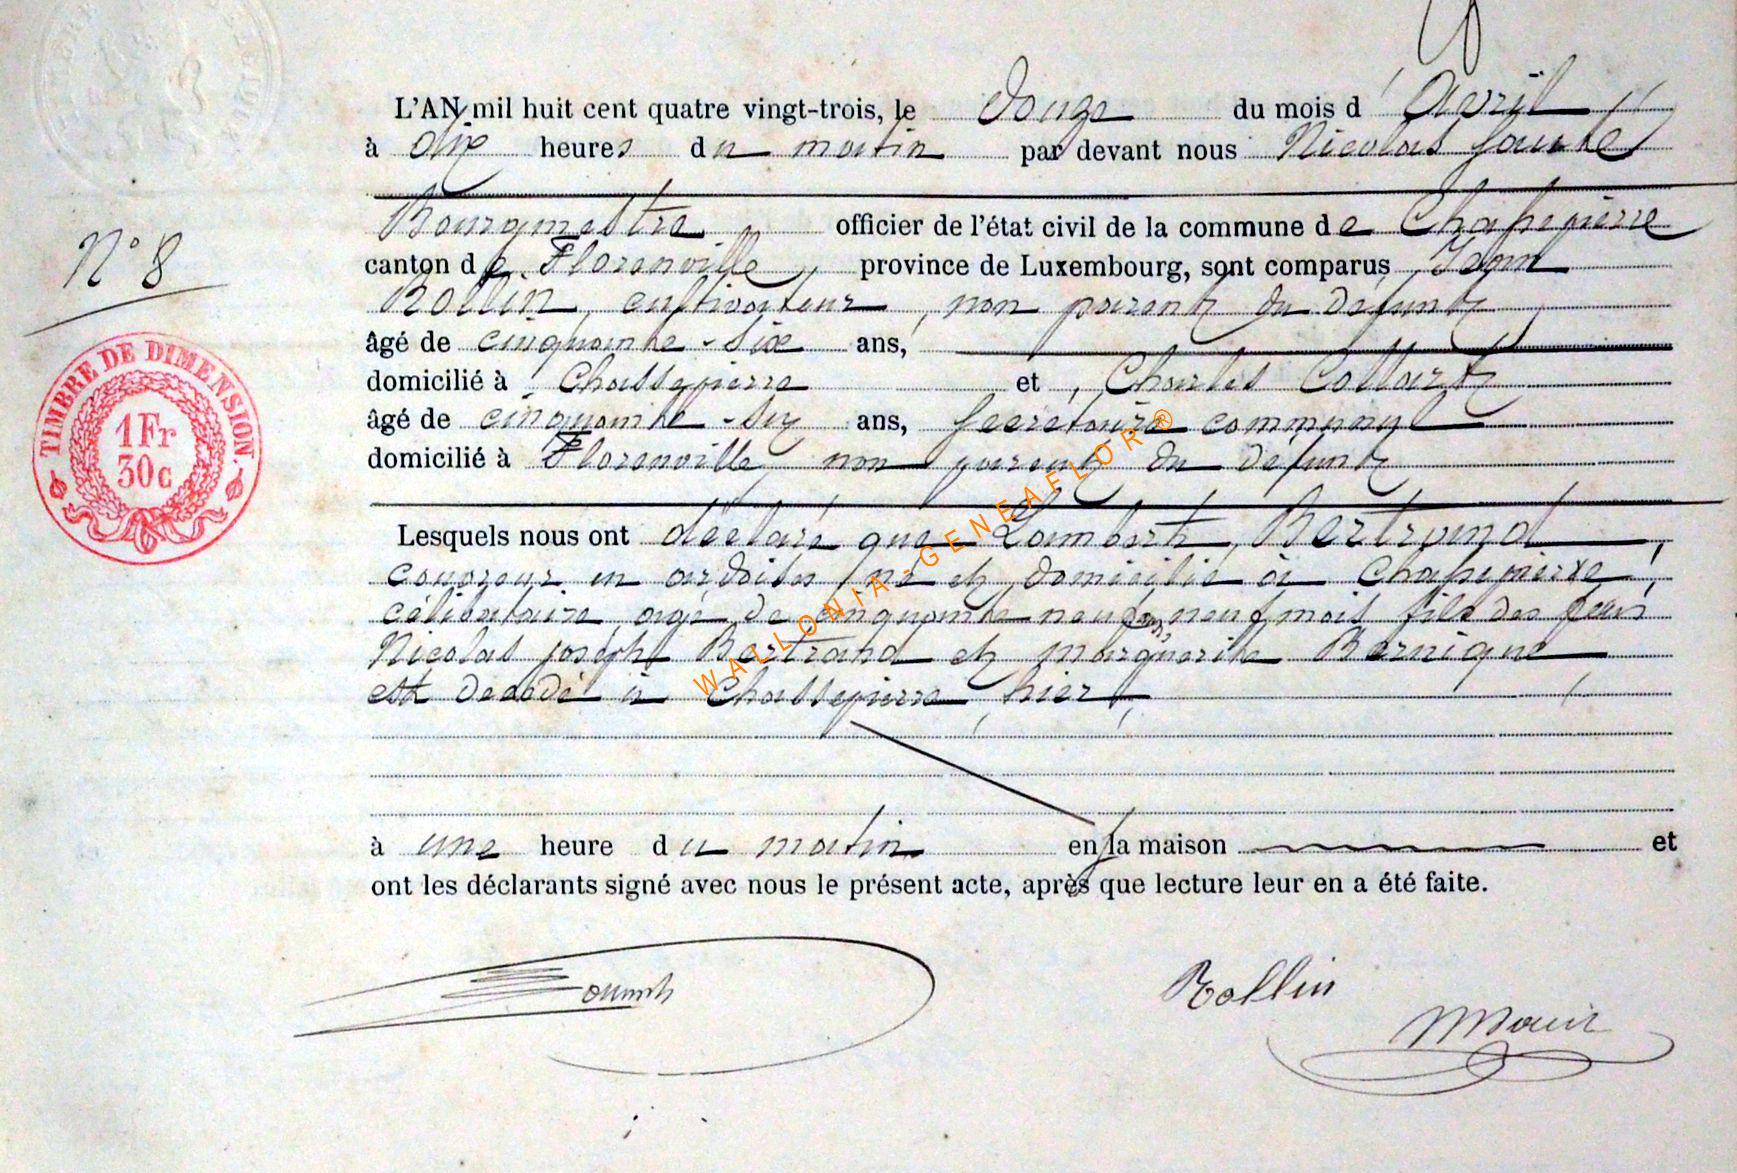 L'AN mil huit cent quatre vingt-trois, le douze du mois d'Avril
à dix heures du matin par devant nous Nicolas
Bourgmestre officier de l'état civil de la commune de Chassepierre
N° 8
canton de Florenville, province de Luxembourg, sont comparus Jean
Rollin, cultivateur, non parent du défunt
âgé de cinquante-six ans,
domicilié à Chassepierre et Charles Collart
âgé de cinquante-six ans, Secretaire communal
domicilié à Florenville, non parent du défunt
TIMBRE DE DIMENSION.
1 Fr
30c
Lesquels nous ont déclaré que Lambert Bertrand,
couvreur en ardoises, né et domicilié à Chassepierre,
célibataire agé de cinquante neuf ans, neuf mois fils des feus
Nicolas Joseph Bertrand et Marguerite Bernique
est decedé à Chassepierre, hier,
à une heure du matin en sa maison et
ont les déclarants signé avec nous le présent acte, après que lecture leur en a été faite.
Rollin
WALLONIA-GENEAFLOR®